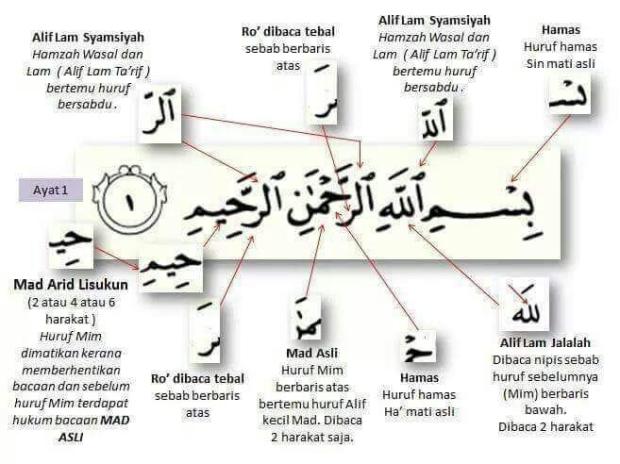 Alif Lam Syamsiyah
Hamzah Wasal dan
Lam ( Alif Lam Ta’rif )
bertemu huruf
bersabdu .
Ro’ dibaca tebal
sebab berbaris
atas
Alif Lam Syamsiyah
Hamzah Wasal dan
Lam ( Alif Lam Ta’rif )
bertemu huruf
bersabdu .
Hamas
Huruf hamas
Sin mati asli
ٱلرَّ
رَ
ٱللَّ
بِسْ
Ayat 1
بِسْمِ ٱللَّهِ ٱلرَّحْمَٰنِ ٱلرَّحِيمِ ١
حِي
حِيمِ
رَ
مَٰ
حْ
لله
Mad Arid Lisukun
(2 atau 4 atau 6
harakat )
Huruf Mim
dimatikan kerana
memberhentikan
bacaan dan sebelum
huruf Mim terdapat
hukum bacaan MAD
ASLI
Ro’ dibaca tebal
sebab berbaris
atas
Mad Asli
Huruf Mim
berbaris atas
bertemu huruf Alif
kecil Mad. Dibaca
2 harakat saja.
Hamas
Huruf hamas
Ha’ mati asli
Alif Lam Jalalah
Dibaca nipis sebab
huruf sebelumnya
(Mim) berbaris
bawah.
Dibaca 2 harakat